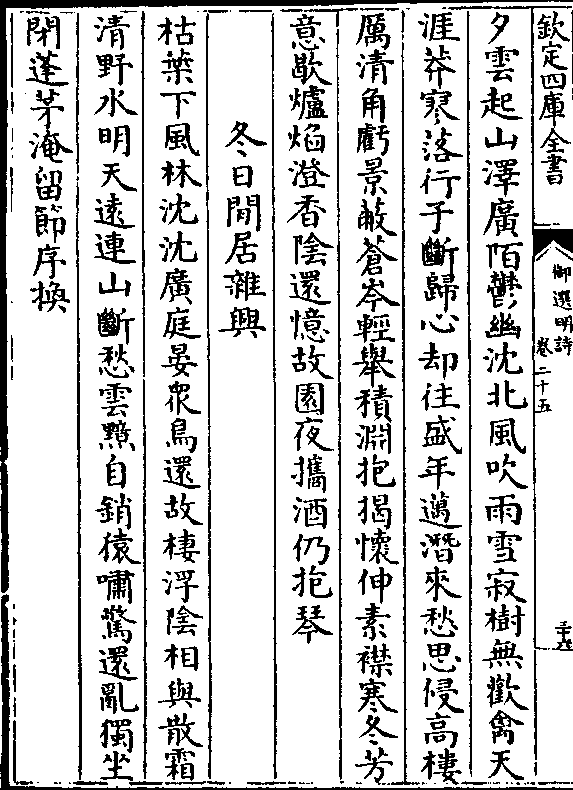 欽定四庫全書
御選明詩
卷二十五
夕雲起山澤廣陌鬱幽沈北風吹雨雪寂樹無歡禽天
涯莽寒落行子斷歸心却往盛年邁潛來愁思侵高棲
厲清角虧景蔽蒼岑輕舉積淵抱揭懷伸素襟寒冬芳
意歇爐焰澄香陰還憶故園夜攜酒仍抱琴
冬日閒居雜興
枯葉下風林沈沈廣庭晏衆鳥還故棲浮陰相與散霜
清野水明天遠連山斷愁雲黯自銷猿嘯驚還亂獨坐
閉蓬茅淹留節序換